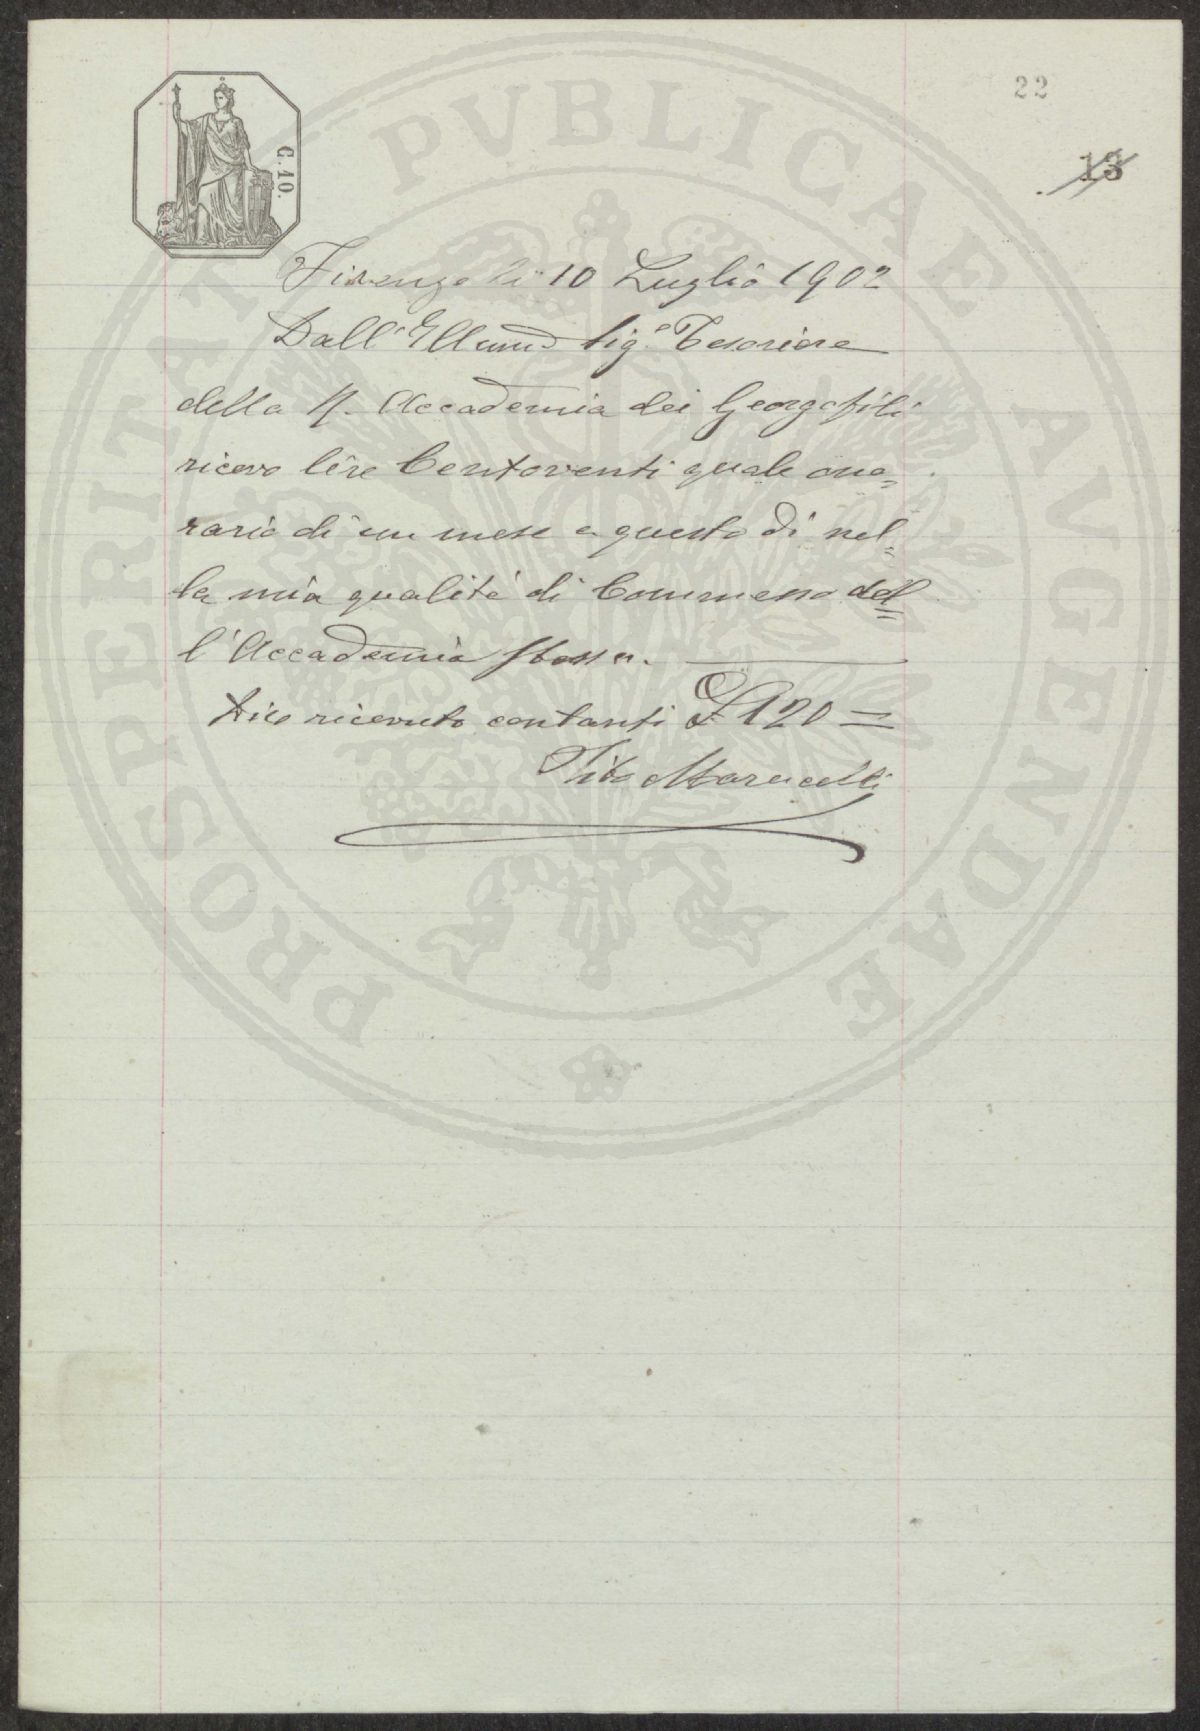 22
13
C. 10.
PROSPERITATI PVBLICAE AVGENDAE
Firenze li 10 Luglio 1902
Dall' Illmo Sig.e Tesoriere
della R. Accademia dei Georgofili
ricevo lire Centoventi quale ono=
rario di un mese a questo dì nel=
la mia qualità di Commesso del=
l'Accademia stessa.
Dico ricevuto contanti £ 120 =
Tito Marucelli